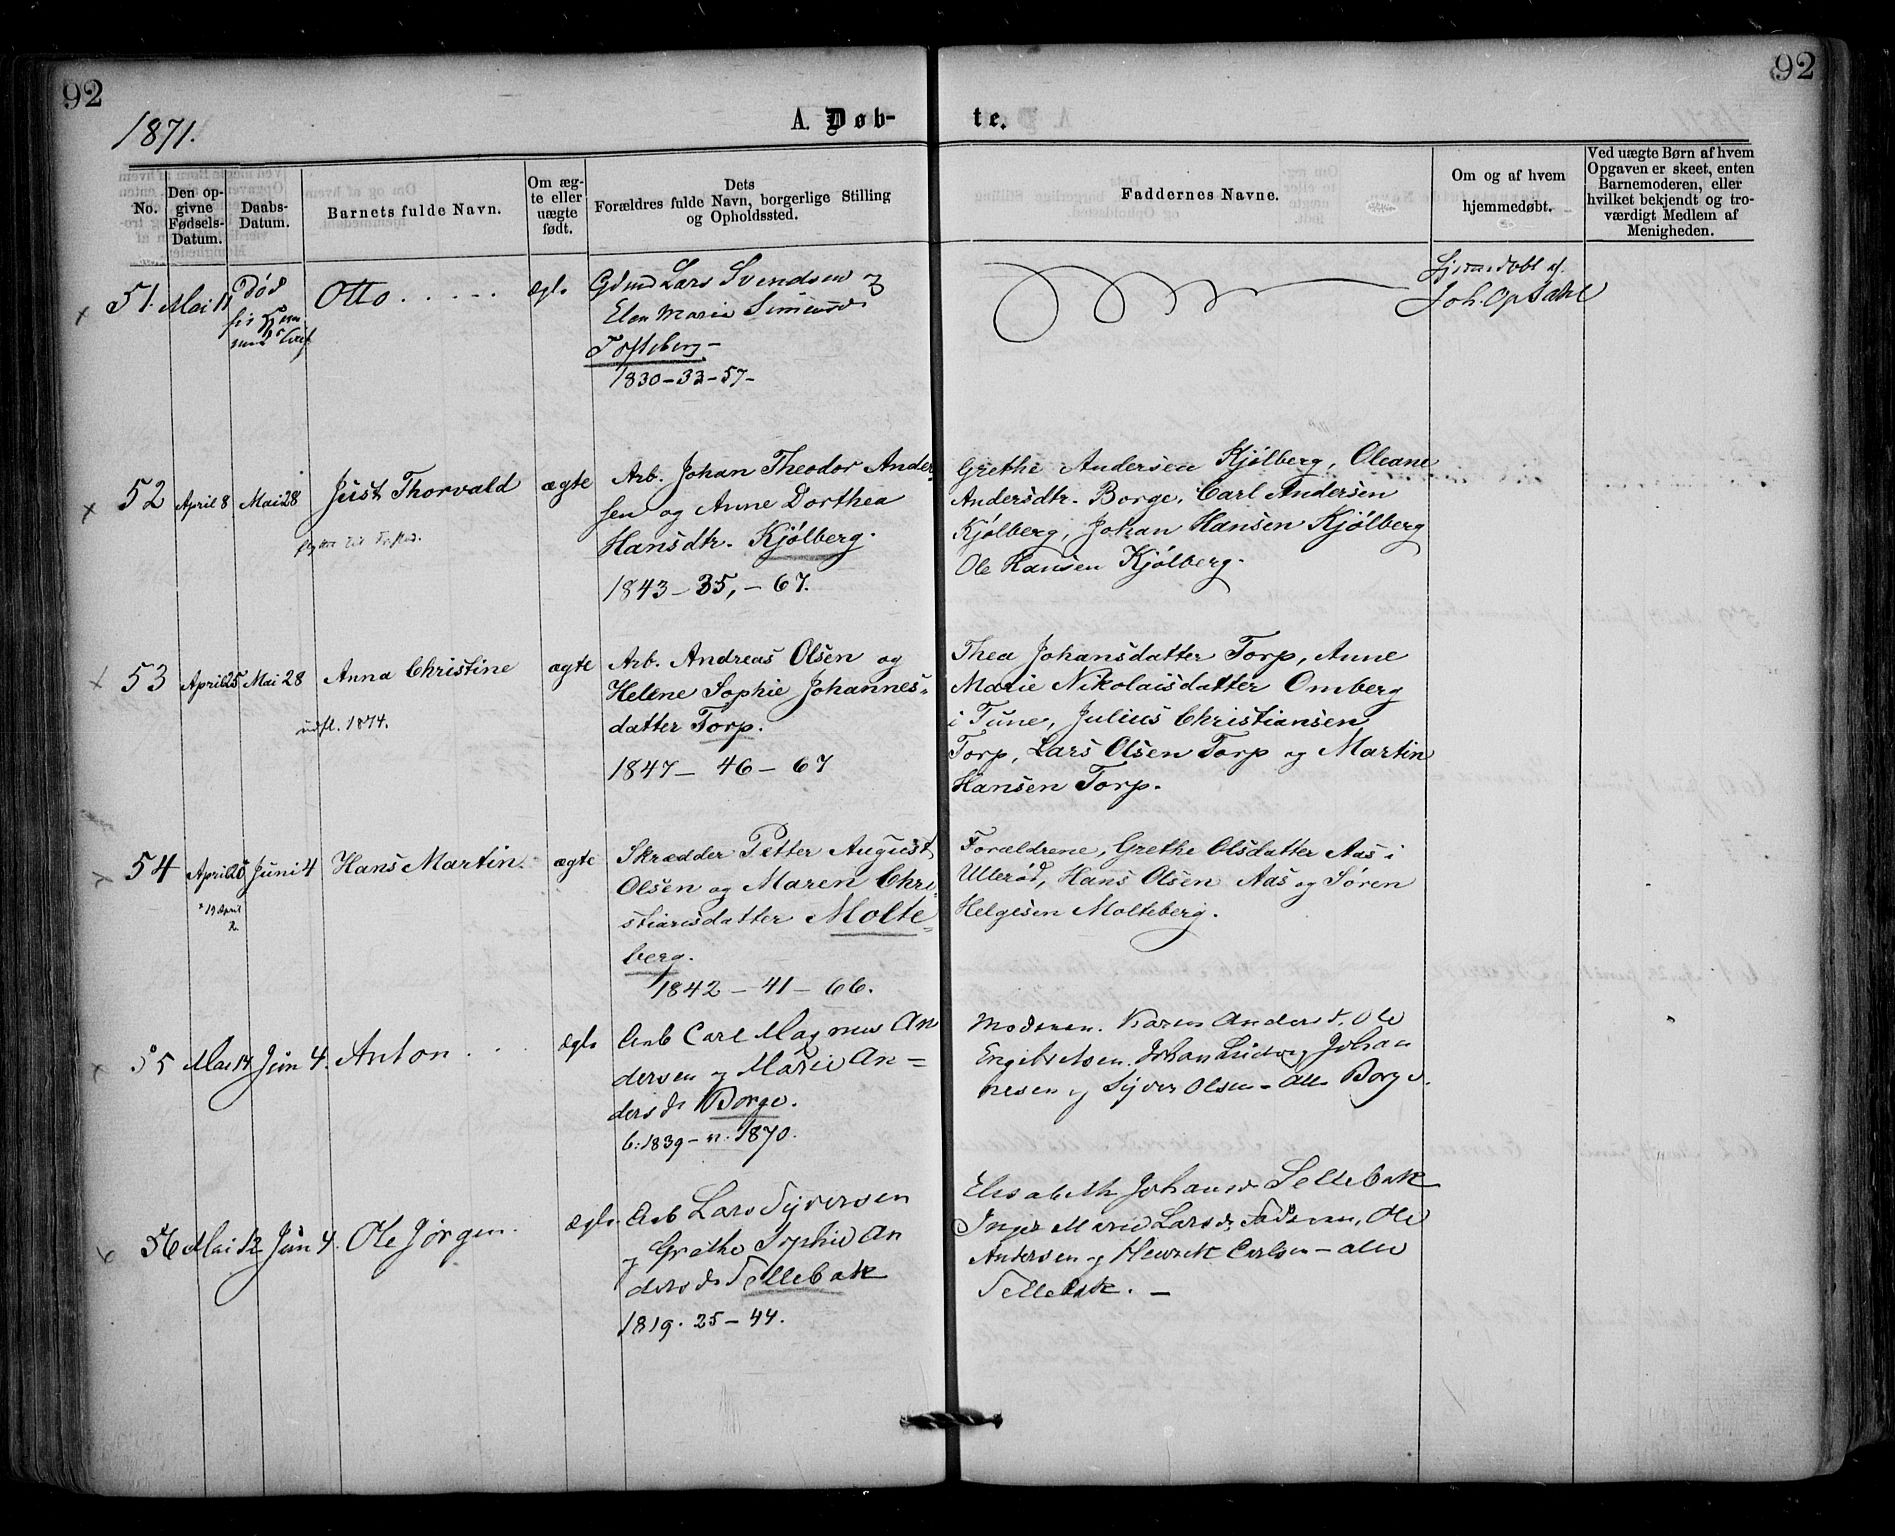 92
92
1871.
A. Døb-
te.
No.
Den op-
givne
Fødsels-
Datum.
Daabs-
Datum.
Barnets fulde Navn.
Om æg-
te eller
uægte
født.
Dets
Forældres fulde Navn, borgerlige Stilling
og Opholdssted.
Faddernes Navne.
Om og af hvem
hjemmedøbt.
Ved uægte Børn af hvem
Opgaven er skeet, enten
Barnemoderen, eller
hvilket bekjendt og tro-
værdigt Medlem af
Menigheden.
51. Mai 11
Død
Otto
ægte
Gdmd Lars Svendsen og
Elen Maria Simensd.
Tofteberg
1830-33-57-
Hjemdøbt af
Joh. Opsahl
52
April 8
Mai 28
Just Thorvald
ægte
Arb. Johan Theodor Ander-
sen og Anne Dorthea
Hansdtr. Kjølberg.
1843-35,-67.
Grethe Andersen Kjølberg, Oleane
Andersdtr. Borge, Carl Andersen
Kjølberg, Johan Hansen Kjølberg
Ole Hansen Kjølberg.
53
April 25
Mai 28
Anna Christine
udfl. 1874.
ægte
Arb. Andreas Olsen og
Helene Sophie Johannes-
datter Torp.
1847- 46-67
Thea Johansdatter Torp, Anne
Marie Nikolaisdatter Omberg
i Tune, Julius Christiansen
Torp, Lars Olsen Torp og Martin
Hansen Torp.
54
April 20
x 19 April
Juni 4
Hans Martin.
ægte
Skrædder Petter August
Olsen og Maren Chri-
stiansdatter Molte-
berg.
1842-41-66.
Forældrene, Grethe Olsdatter Aas i
Ullerød, Hans Olsen Aas og Søren
Helgesen Molteberg.
55
Mai 14
Jun 4.
Anton
ægte
Arb Carl Magnus An
dersen og Marie An-
dersd. Borge.
b: 1839- n. 1870.
Moderen. Karen Andersd, Ole
Engebretsen. Johan Ludvig Johan
nesen og Syver Olsen - alle Borge.
56
Mai 12
Jun 4.
Ole Jørgen.
ægte
Arb Lars Syversen
og Grethe Sophie An
dersd. Sellebak
1819. 25-44.
Elisabeth Johansd Sellebak
Inger Marie Larsd, Ole
Andersen og Henrik Carlsen - alle
Sellebak.